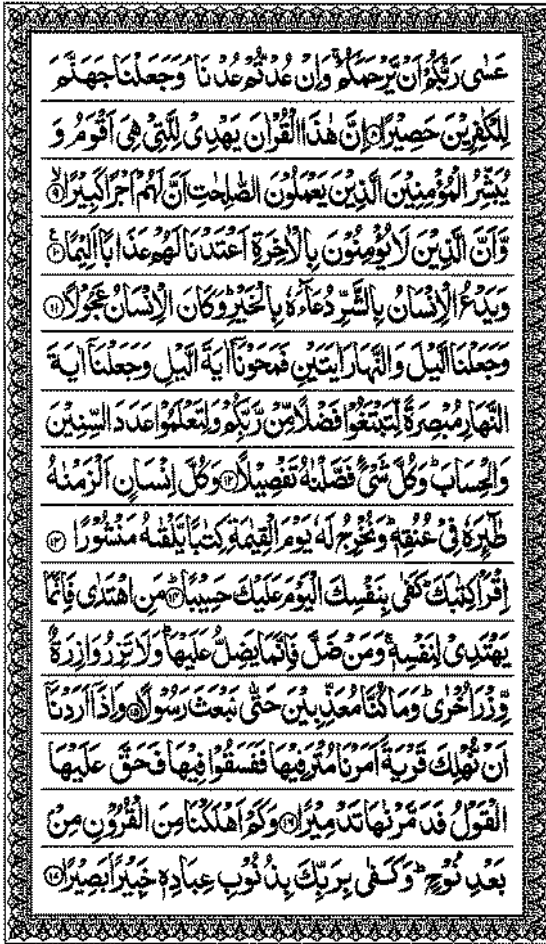 عَسٰى رَبُّكُمۡ اَنۡ يَّرۡحَمَكُمۡ‌ۚ وَاِنۡ عُدْتُّمۡ عُدۡنَا‌ۘ وَجَعَلۡنَا جَهَنَّمَ
لِلۡكٰفِرِيۡنَ حَصِيۡرًا‏ ﴿۸﴾ اِنَّ هٰذَا الۡقُرۡاٰنَ يَهۡدِىۡ لِلَّتِىۡ هِىَ اَقۡوَمُ وَ
يُبَشِّرُ الۡمُؤۡمِنِيۡنَ الَّذِيۡنَ يَعۡمَلُوۡنَ الصّٰلِحٰتِ اَنَّ لَهُمۡ اَجۡرًا كَبِيۡرًاۙ‏ ﴿۹﴾
وَّاَنَّ الَّذِيۡنَ لَا يُؤۡمِنُوۡنَ بِالۡاٰخِرَةِ اَعۡتَدۡنَا لَهُمۡ عَذَابًا اَلِيۡمًا‏ ﴿۱۰﴾
وَيَدۡعُ الۡاِنۡسَانُ بِالشَّرِّ دُعَآءَهٗ بِالۡخَيۡرِ‌ ؕ وَكَانَ الۡاِنۡسَانُ عَجُوۡلًا‏ ﴿۱۱﴾
وَجَعَلۡنَا الَّيۡلَ وَالنَّهَارَ اٰيَتَيۡنِ‌ فَمَحَوۡنَاۤ اٰيَةَ الَّيۡلِ وَجَعَلۡنَاۤ اٰيَةَ
النَّهَارِ مُبۡصِرَةً لِّتَبۡتَغُوۡا فَضۡلًا مِّنۡ رَّبِّكُمۡ وَلِتَعۡلَمُوۡا عَدَدَ السِّنِيۡنَ
وَالۡحِسَابَ‌ؕ وَكُلَّ شَىۡءٍ فَصَّلۡنٰهُ تَفۡصِيۡلًا‏ ﴿۱۲﴾ وَكُلَّ اِنۡسَانٍ اَلۡزَمۡنٰهُ
طٰۤٮِٕرَهٗ فِىۡ عُنُقِهٖ‌ؕ وَنُخۡرِجُ لَهٗ يَوۡمَ الۡقِيٰمَةِ كِتٰبًا يَّلۡقٰٮهُ مَنۡشُوۡرًا‏ ﴿۱۳﴾
اِقۡرَاۡ كِتٰبَكَؕ كَفٰى بِنَفۡسِكَ الۡيَوۡمَ عَلَيۡكَ حَسِيۡبًاؕ‏ ﴿۱۴﴾ مَنِ اهۡتَدٰى فَاِنَّمَا
يَهۡتَدِىۡ لِنَفۡسِهٖ ‌ۚ وَمَنۡ ضَلَّ فَاِنَّمَا يَضِلُّ عَلَيۡهَا‌ ؕ وَلَا تَزِرُ وَازِرَةٌ
وِّزۡرَ اُخۡرٰى‌ ؕ وَمَا كُنَّا مُعَذِّبِيۡنَ حَتّٰى نَبۡعَثَ رَسُوۡلًا‏ ﴿۱۵﴾ وَاِذَاۤ اَرَدۡنَاۤ
اَنۡ نُّهۡلِكَ قَرۡيَةً اَمَرۡنَا مُتۡرَفِيۡهَا فَفَسَقُوۡا فِيۡهَا فَحَقَّ عَلَيۡهَا
الۡقَوۡلُ فَدَمَّرۡنٰهَا تَدۡمِيۡرًا‏ ﴿۱۶﴾ وَكَمۡ اَهۡلَكۡنَا مِنَ الۡقُرُوۡنِ مِنۡۢ
بَعۡدِ نُوۡحٍ‌ؕ وَكَفٰى بِرَبِّكَ بِذُنُوۡبِ عِبَادِهٖ خَبِيۡرًۢا بَصِيۡرًا‏ ﴿۱۷﴾